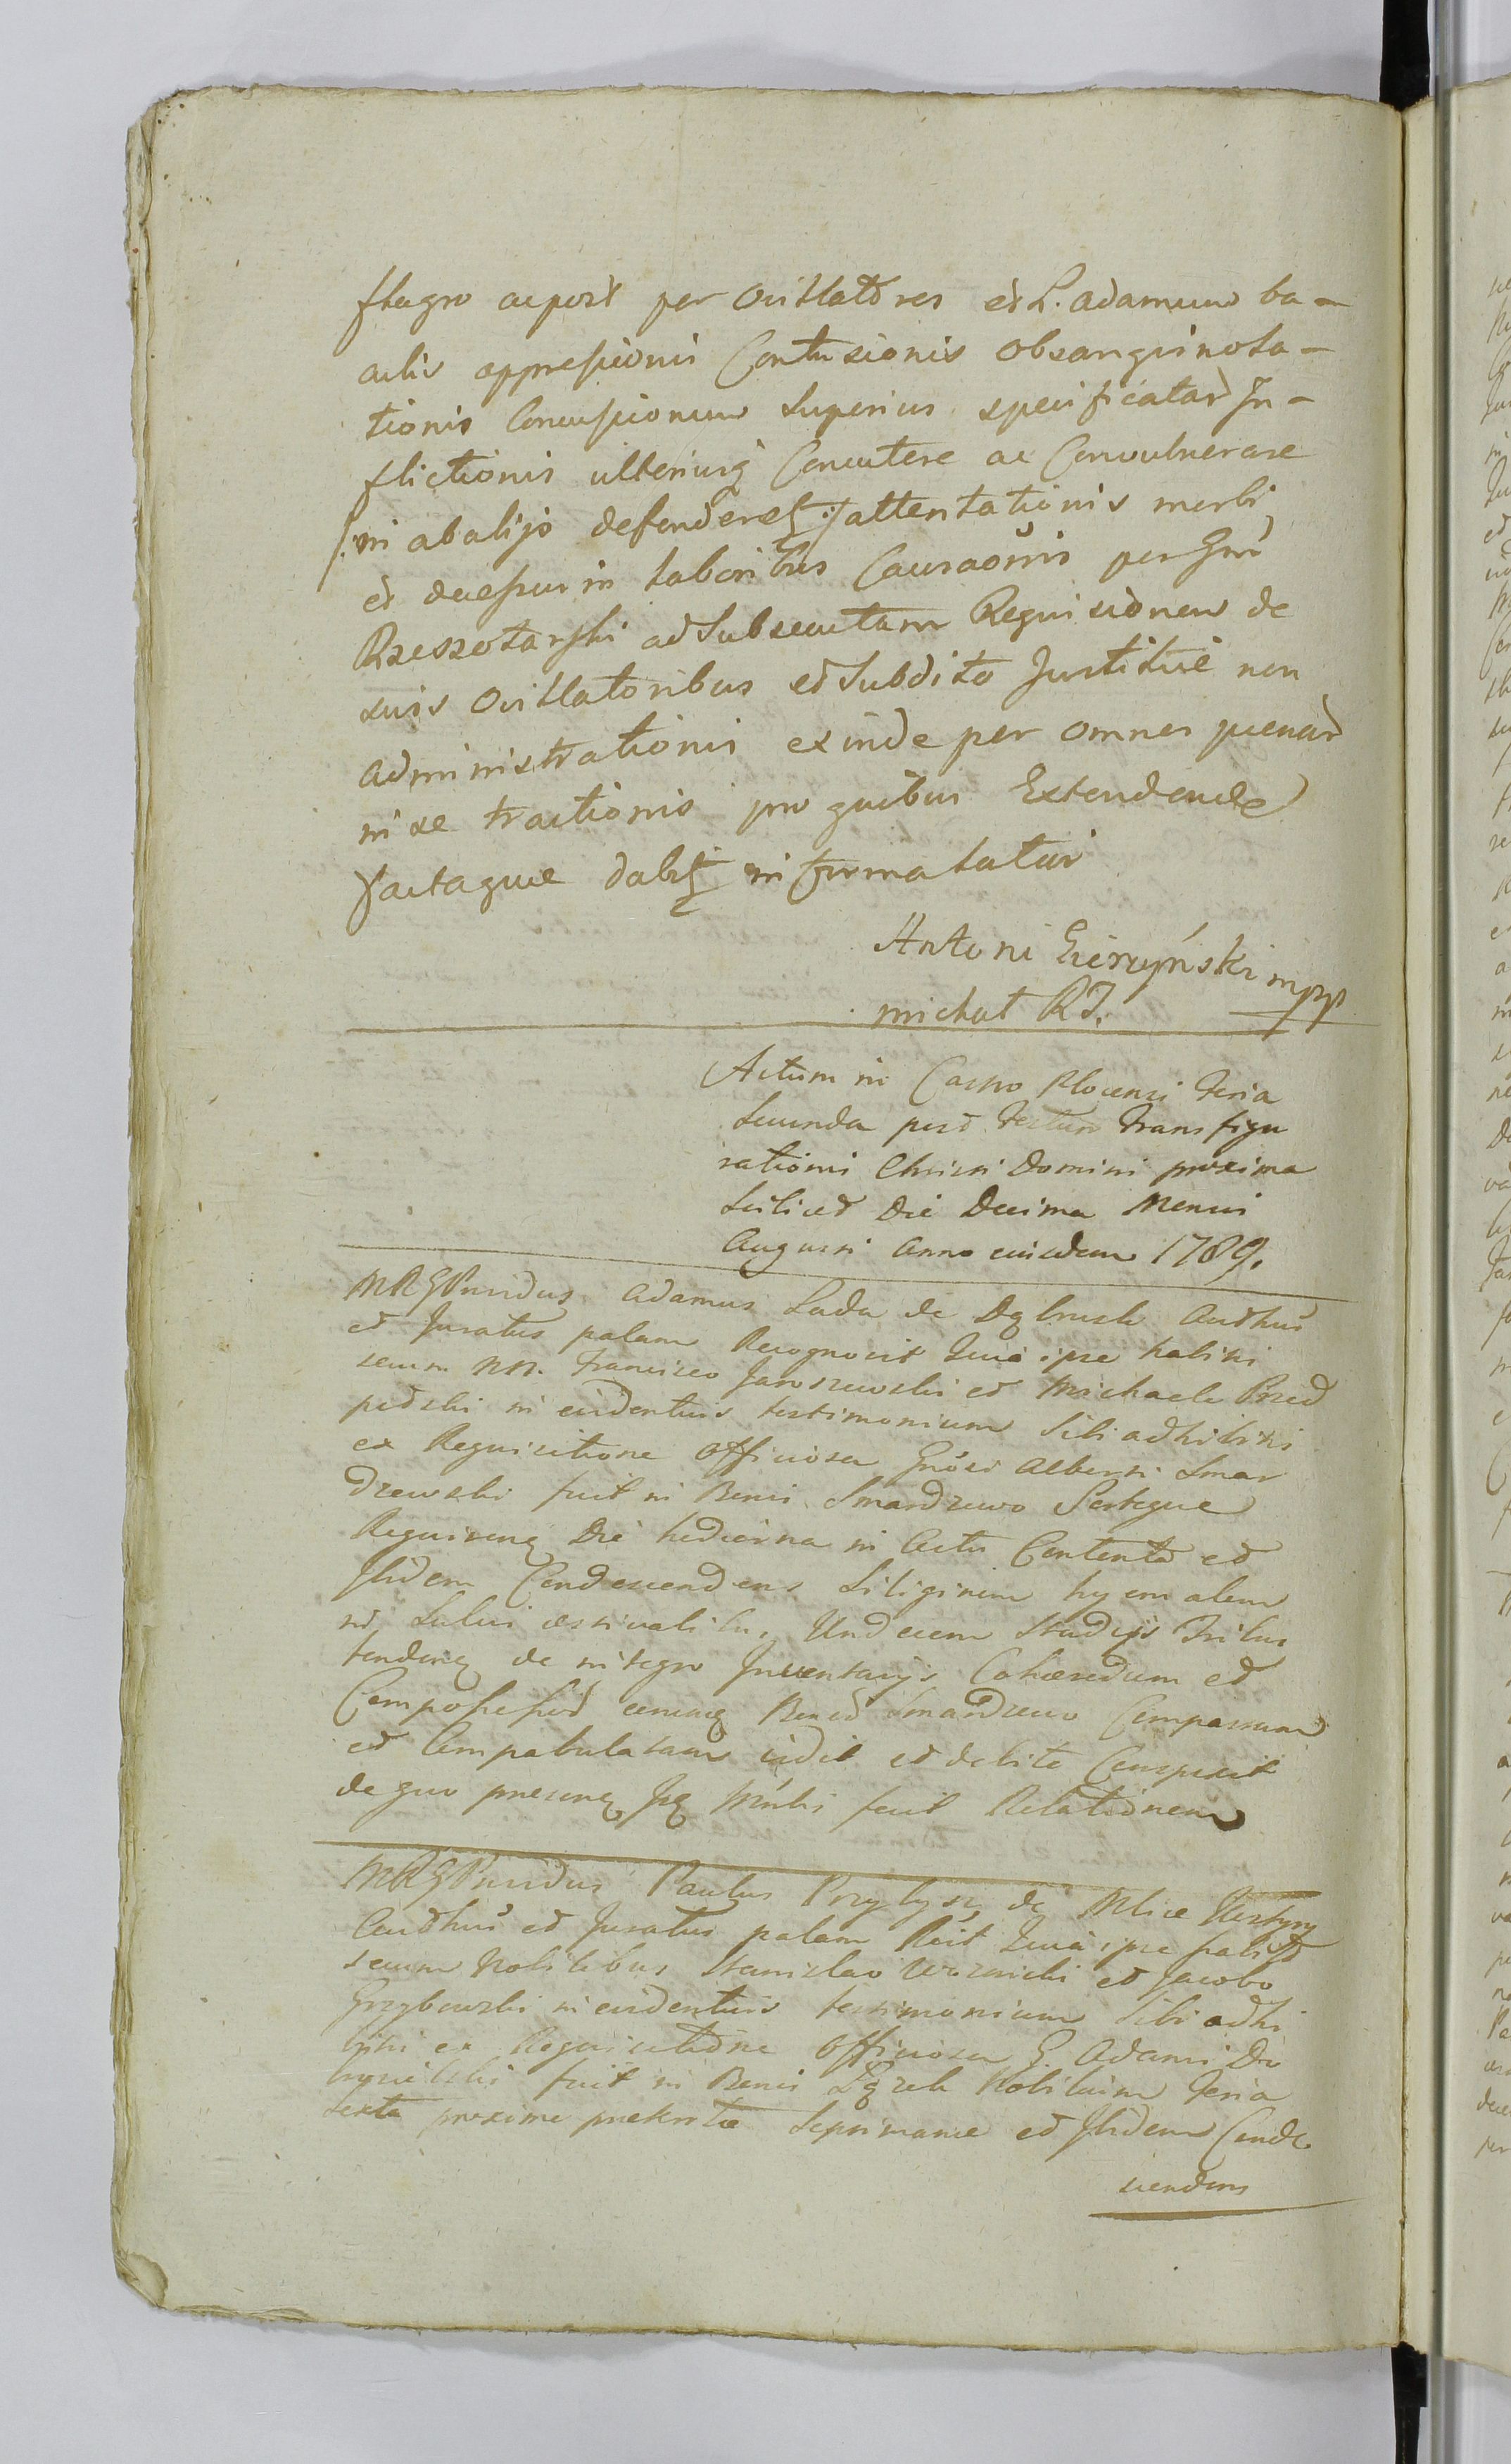 flagro ac post per Ovillatores et L. Adamum ba-
culis oppressionis Contusionis obsanguinola-
tionis Concussionum superius specificatar In-
flictionis ulteriusq Concutere ac Convulnerare
/: ni ab alijs defenderet :/ attentationis morbi
et decessu in laboribus Causaonis per Gnm
Rzeszotarski ad subsecutam Requisitionem de
suis Ovillatoribus et subdito Justitiæ non
administrationis exinde per omnes pænas
in se tractionis pro quibus Extendendæ
factaque dabit informatatur
Antoni mpp
michał RJ.
Actum in Castro Plocensi Feria
Secunda post Festum Transfigu
rationis Christi Domini proxima
Scilicet Die Decima Mensis
Augusti Anno eiusdem 1789.
MRGPnridus Adamus Lada de Dąbrusk Authus
et Juratus palam Recognovit Quia ipse habitis
secum NN. Francisco Jaroszewski et Michaele Przed
pedski in evidentius testimonium sibi adhibitis
ex Requisitione Officiosa Gnosi Alberti Smar
dzewski fuit in Bonis Smardzewo Parteque
Requirenq Die hodierna in Actu Contenta et
Ibidem Condescendens Siliginem hyemalem
in sulcis æstivalibu. Undecem Stadijs Tribus
tendenq de integro Inventarijs Cohæredum et
Compossessod eorumq Bonod Smardzewo Compassam
et Compabulatam vidit et debite Conspexit
de quo præsenq Jpq Mnlis fecit Relationem
MRGPnridus Paulus Przybysz de Mlice Kostery
Authus et Juratus palam Rcit Quia ipse habitis
secum Nobilibus Stanislao Woznicki et Jacobo
Grzybowski in evidentius testimonium sibi adhi
bitis ex Requisitione Officiosa G. Adami Do
fuit in Bonis Nobilium Feria
sexta proxime præterita Septimanæ et Ibidem Conde
scendens